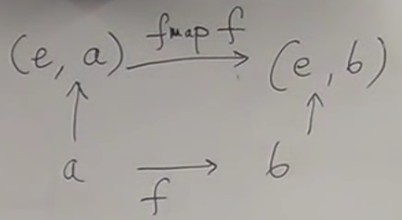 (e, a) fmap f (e, b)
a f b